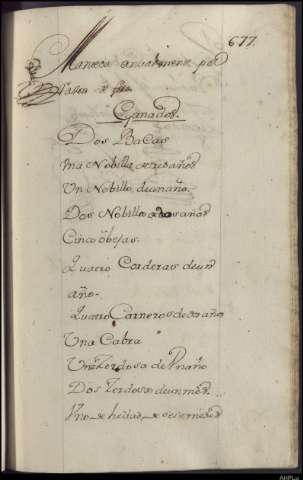 677.
Manteca anualmente por
Ganados.
Dos Bacas
Una Nobilla de dos años
Un Nobillo de un año.
Dos Nobillos de dos años
Cinco obejas.
Quatro Corderas de un
año.
Quatro Carneros de año
Una Cabra
Una Zerdosa de Un año
Dos Zerdosos de un mes
Uno de seis meses